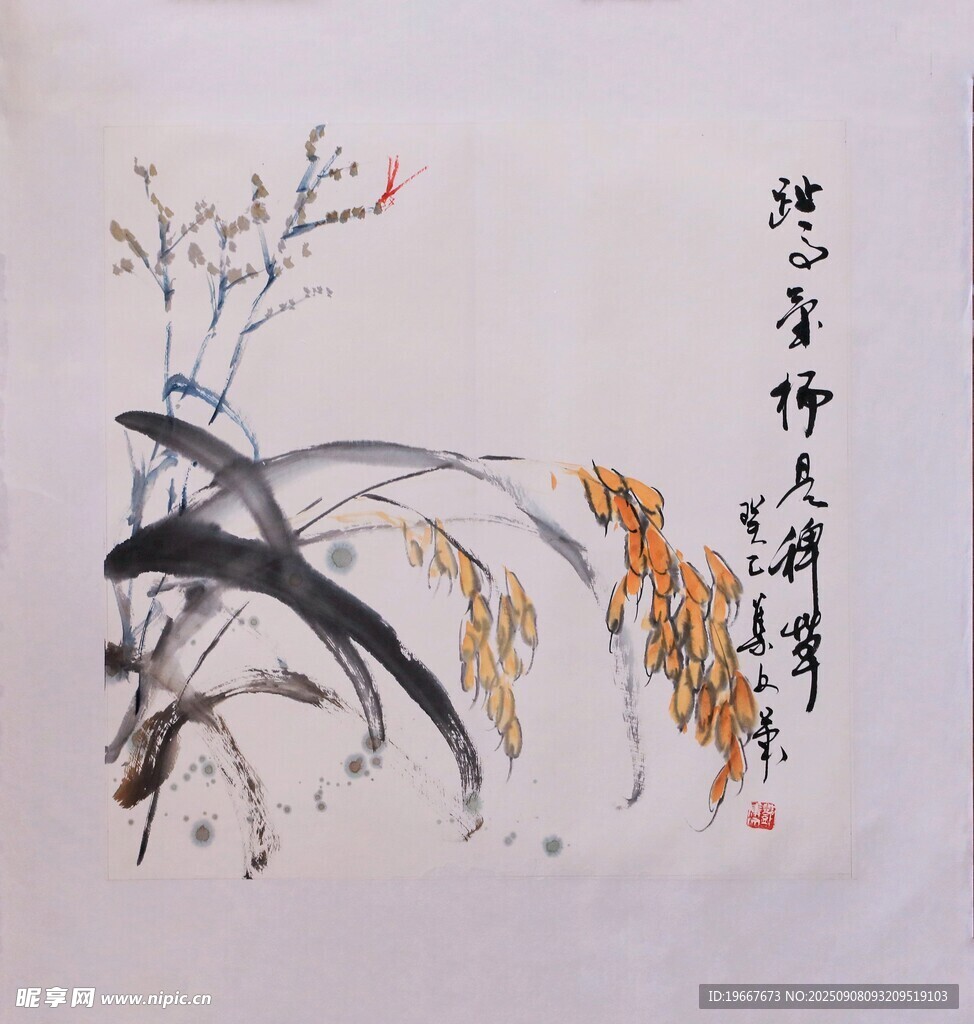 趾高氣揚是稗草
癸巳
昵享网 www.nipic.cn
ID:19667673 NO:20250908093209519103